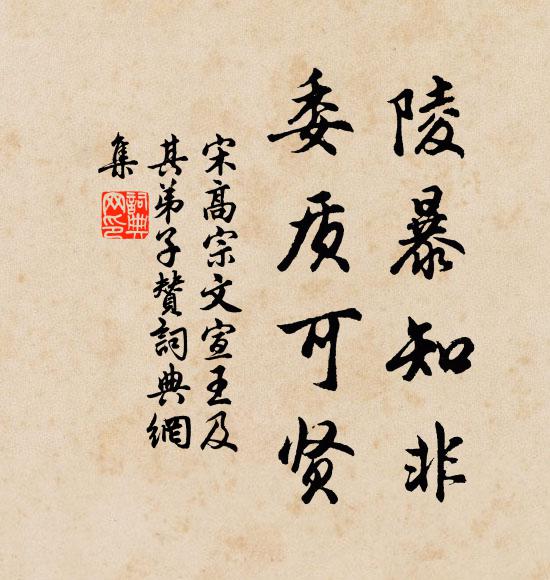 陵暴知非
委质可贤
宋高宗文宣王及
其弟子贊詞典網
集
詞典
网印